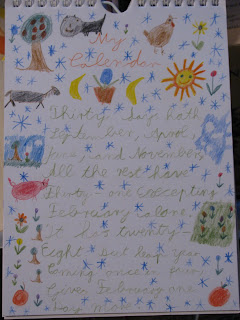 My
Calendar
Thirty day hath
September, April,
June, and November,
All the rest have
thirty-one excepting
February alone,
It has twenty-
Eight but leap year
Coming once in four
Gives February one
Day more